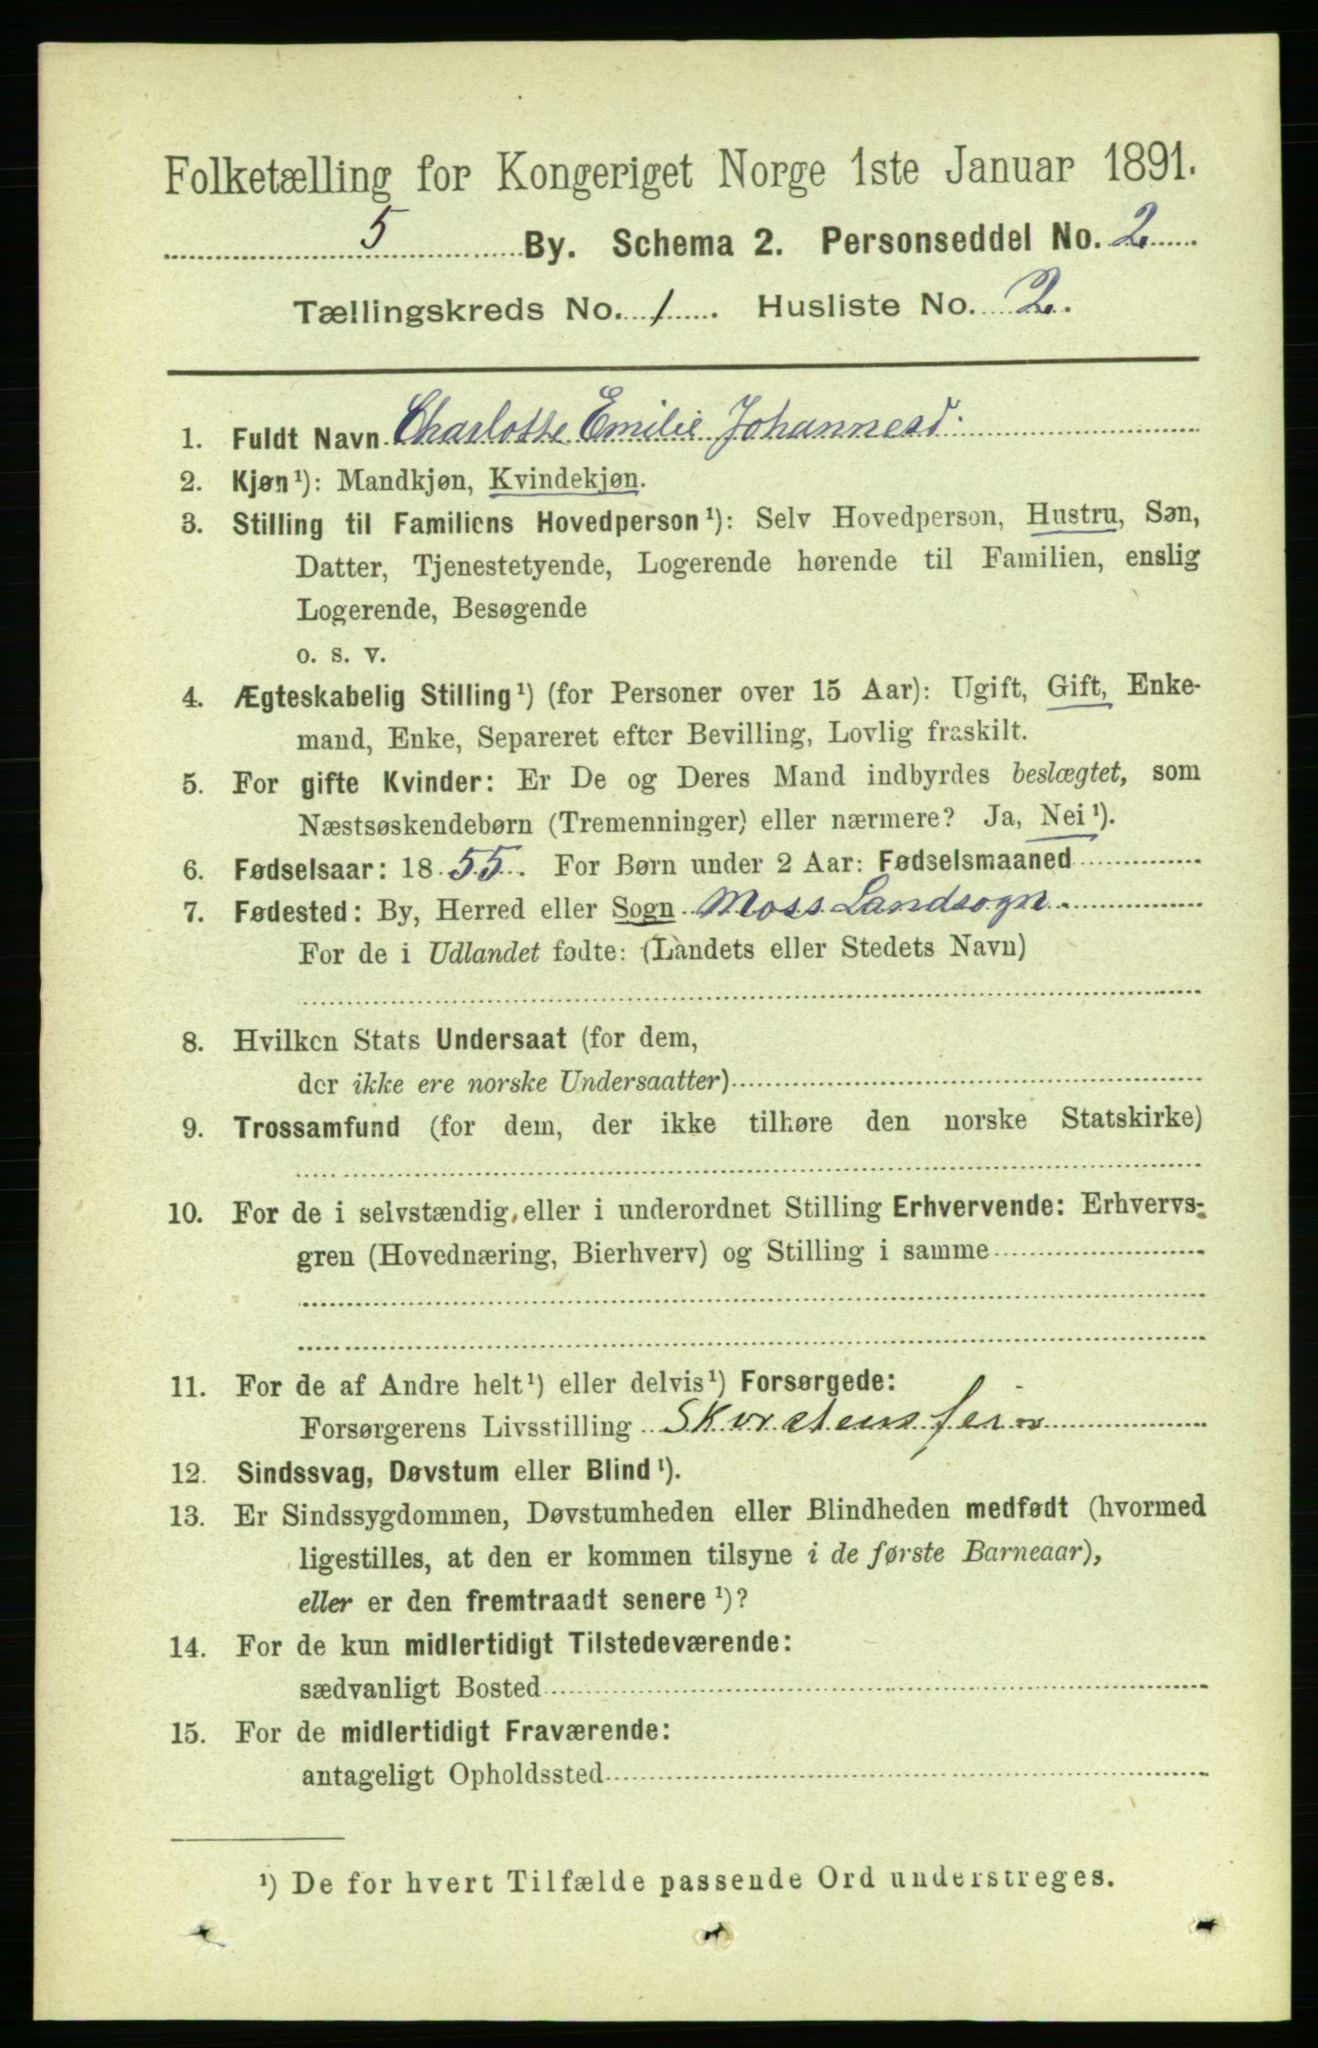 Folketælling for Kongeriget Norge 1ste Januar 1891.
5 By. Schema 2. Personseddel No. 2
Tællingskreds No. 1. Husliste No. 2.
1. Fuldt Navn Charlotte Emilie Johannesd.
2. Kjøn¹): Mandkjøn, Kvindekjøn.
3. Stilling til Familiens Hovedperson¹): Selv Hovedperson, Hustru, Søn,
Datter, Tjenestetyende, Logerende hørende til Familien, enslig
Logerende, Besøgende
o. s. v.
4. Ægteskabelig Stilling¹) (for Personer over 15 Aar): Ugift, Gift, Enke-
mand, Enke, Separeret efter Bevilling, Lovlig fraskilt.
5. For gifte Kvinder: Er De og Deres Mand indbyrdes beslægtet, som
Næstsøskendebørn (Tremenninger) eller nærmere? Ja, Nei¹).
6. Fødselsaar: 1855. For Børn under 2 Aar: Fødselsmaaned
7. Fødested: By, Herred eller Sogn Moss Landsogn
For de i Udlandet fødte: (Landets eller Stedets Navn)
8. Hvilken Stats Undersaat (for dem,
der ikke ere norske Undersaatter)
9. Trossamfund (for dem, der ikke tilhøre den norske Statskirke)
10. For de i selvstændig eller i underordnet Stilling Erhvervende: Erhvervs-
gren (Hovednæring, Bierhverv) og Stilling i samme
11. For de af Andre helt¹) eller delvis¹) Forsørgede:
Forsørgerens Livsstilling Skorstensfeier
12. Sindssvag, Døvstum eller Blind¹).
13. Er Sindssygdommen, Døvstumheden eller Blindheden medfødt (hvormed
ligestilles, at den er kommen tilsyne i de første Barneaar),
eller er den fremtraadt senere¹)?
14. For de kun midlertidigt Tilstedeværende:
sædvanligt Bosted
15. For de midlertidigt Fraværende:
antageligt Opholdssted
¹) De for hvert Tilfælde passende Ord understreges.